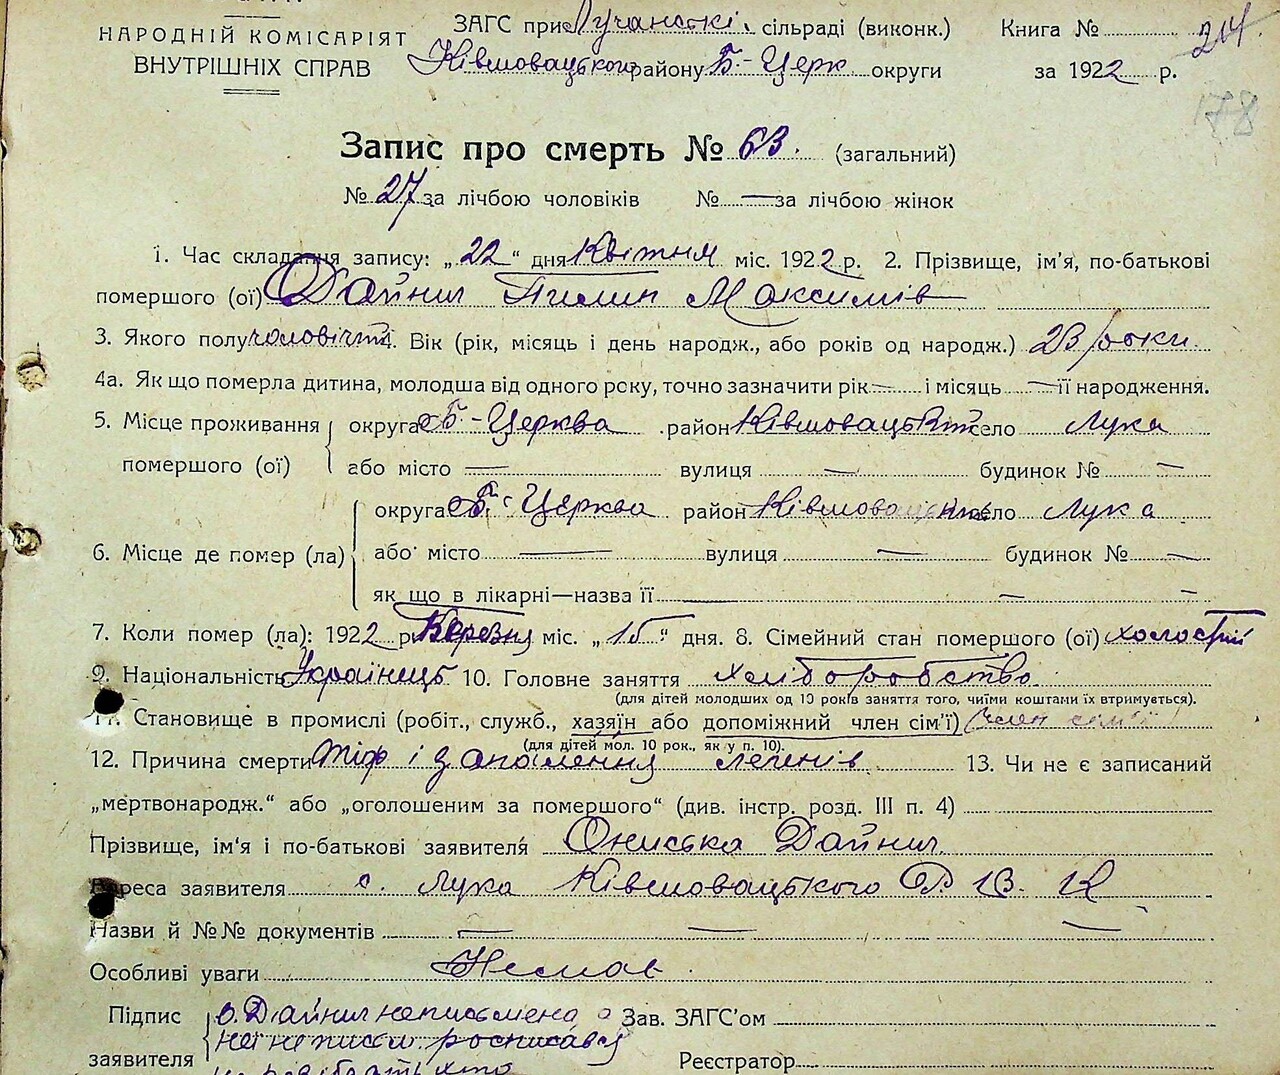 НАРОДНІЙ КОМІСАРІЯТ
ВНУТРІШНІХ СПРАВ
ЗАГС при Лучанські сільраді (виконк.) Книга №
Ківшовацького району Б.-Церк. округи за 1922 р.
214
178
Запис про смерть № 63. (загальний)
№ 27 за лічбою чоловіків № — за лічбою жінок
1. Час складання запису: „22“ дня Квітня міс. 1922 р. 2. Прізвище, ім'я, по-батькові
помершого (ої) Дайнил Пилип Максимів
3. Якого полу чоловічт 4. Вік (рік, місяць і день народж., або років од народж.) 23 роки.
4а. Як що померла дитина, молодша від одного року, точно зазначити рік — і місяць — її народження.
5. Місце проживання округа Б-Церква район Ківшовацький село Лука
помершого (ої) або місто — вулиця — будинок № —
округа Б.-Церква район Ківшовацький село Лука
6. Місце де помер (ла) або місто — вулиця — будинок № —
як що в лікарні—назва її — — —
7. Коли помер (ла): 1922 р. Березня міс. „15“ дня. 8. Сімейний стан помершого (ої) холостий
9. Національність Українець 10. Головне заняття хліборобство
(для дітей молодших од 10 років заняття того, чиїми коштами їх втримується).
11. Становище в промислі (робіт., служб., хазяїн або допоміжний член сім'ї) член сім'ї
(для дітей мол. 10 рок., як у п. 10).
12. Причина смерти Тіф і запалення легенів 13. Чи не є записаний
„мертвонародж.“ або „оголошеним за помершого“ (див. інстр. розд. III п. 4)
Прізвище, ім'я і по-батькові заявителя Ониська Дайнил
Адреса заявителя с. Лука Ківшовацького Р. В. К
Назви й №№ документів — — —
Особливі уваги Немає.
Підпис О. Дайнил неписьмена а Зав. ЗАГС'ом
заявителя росписався Реєстратор